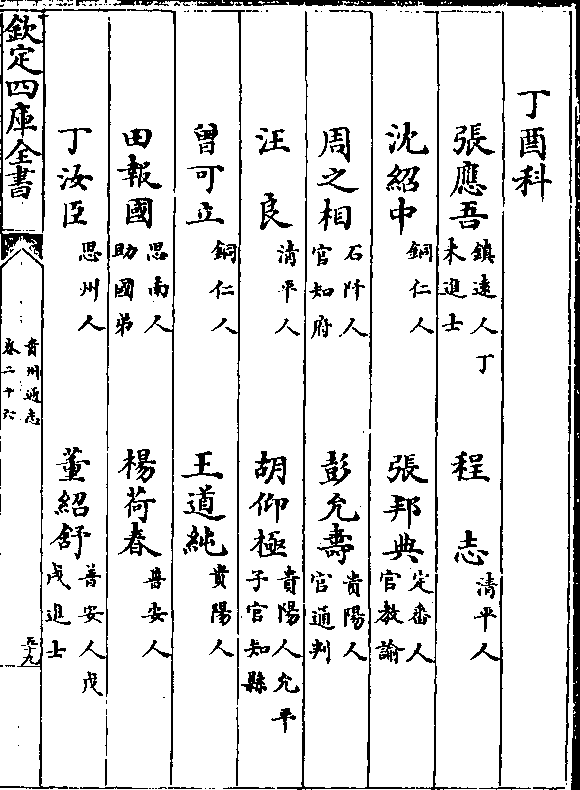 丁酉科
張應吾 鎮遠人丁未進士 程志 清平人
沈紹中 銅仁人 張邦典 定番人官教諭
周之相 石阡人官知府 彭允壽 貴陽人官通判
汪良 清平人 胡仰極 貴陽人允平子官知縣
曾可立 銅仁人 王道純 貴陽人
田報國 思南人助國弟 楊荷春 普安人
丁汝臣 思州人 董紹舒 普安人戊戌進士
欽定四庫全書
貴州通志
卷二十六